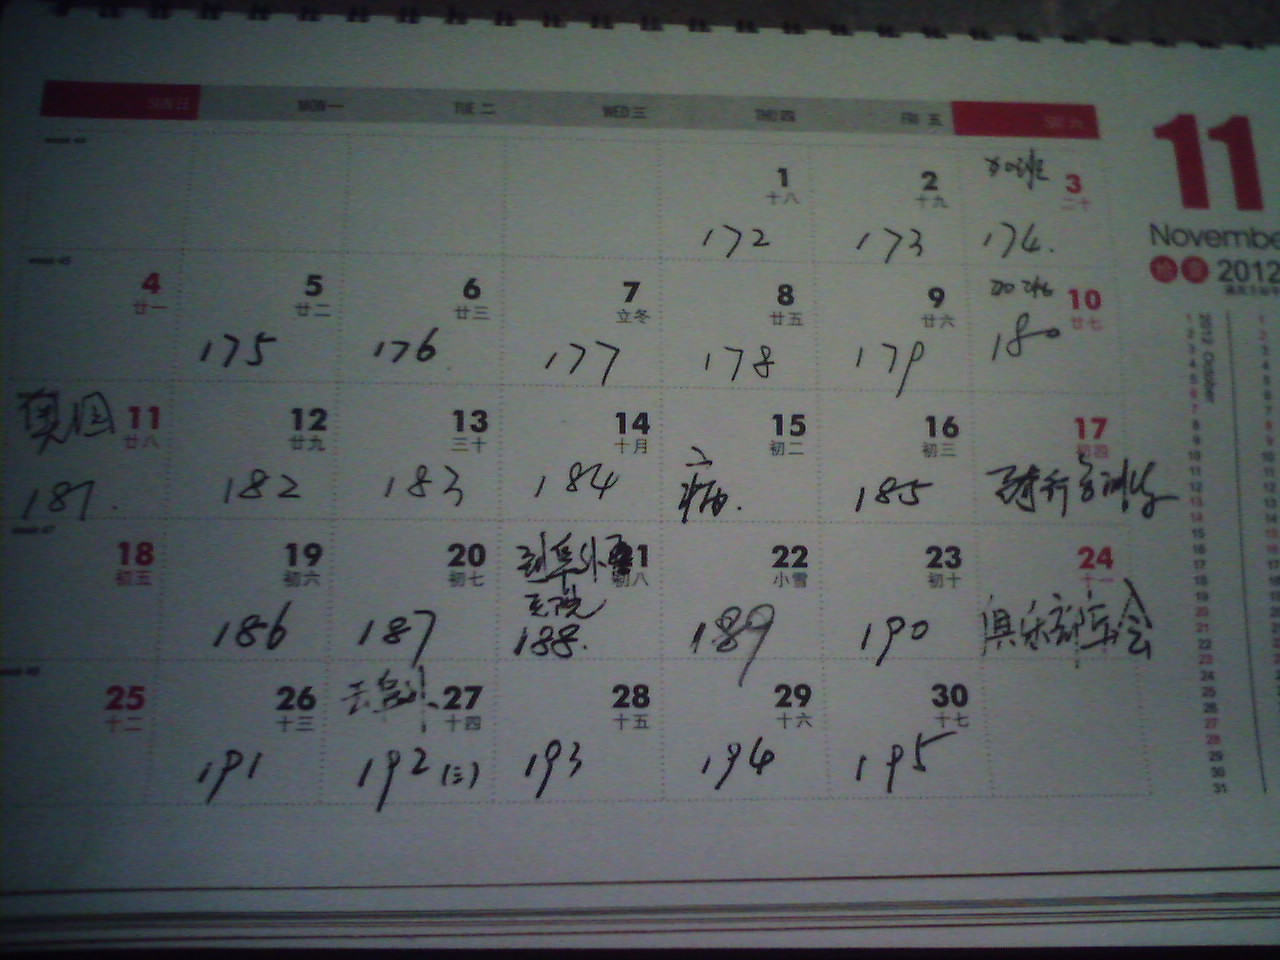 SUN日 MON一 TUE 二 WED三 THU四 FRI 五 SAT 六
11
November
2012
加班
1 2 3
十八 十九 二十
172 173 174.
4 5 6 7 8 9 加班 10
廿一 廿二 廿三 立冬 廿五 廿六 廿七
175 176 177 178 179 180
11 12 13 14 15 16 17
廿八 廿九 三十 十月 初二 初三 初四
181. 182 183 184 病. 185
18 19 20 到阜外 21 22 23 24
初五 初六 初七 初八 小雪 初十 十一
医院
186 187 188. 189 190 俱乐部年会
25 26 27 28 29 30
十二 十三 十四 十五 十六 十七
191 192 (三) 193 194 195
2012 October
1
2
3
4
5
6
7
8
9
10
11
12
13
14
15
16
17
18
19
20
21
22
23
24
25
26
27
28
29
30
31